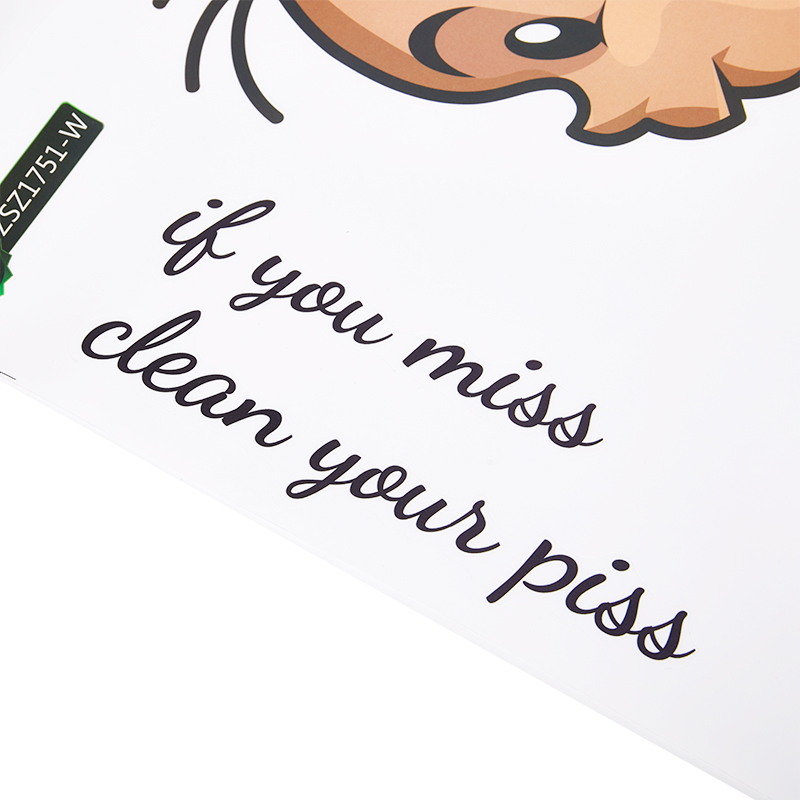 ZSZ1751-W
if you miss
clean your piss